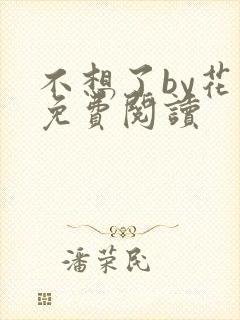 不想了by花
免費閱讀
潘荣民